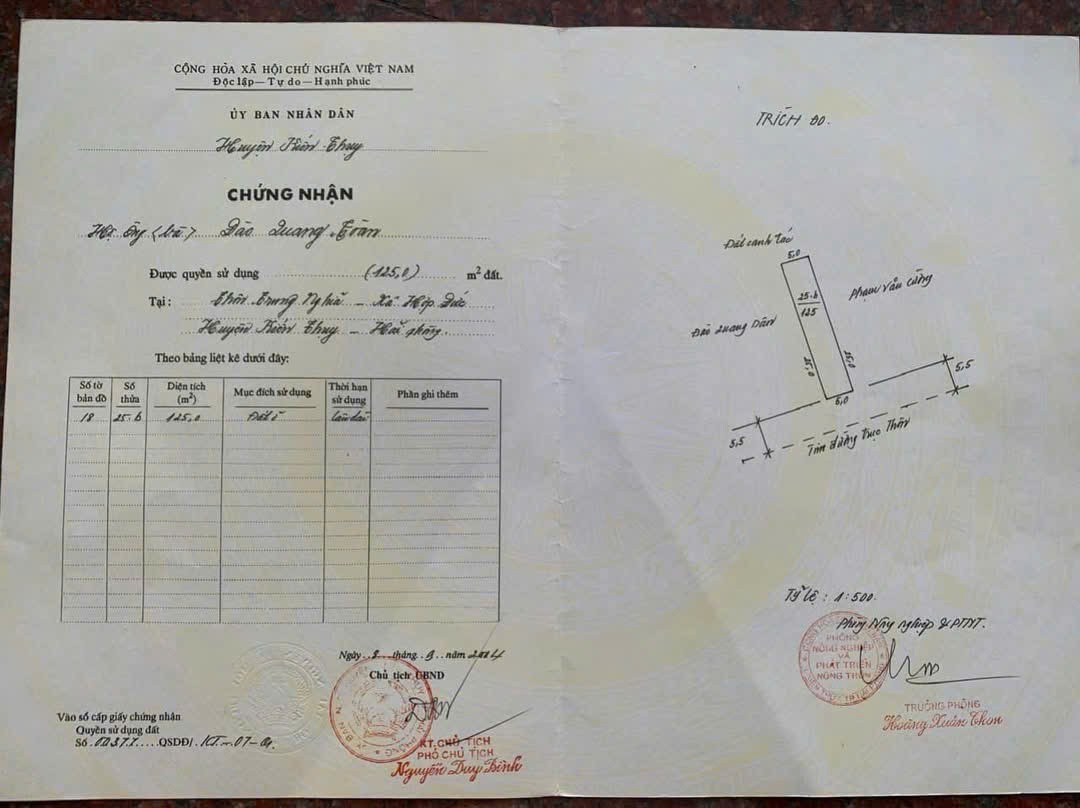 CỘNG HÒA XÃ HỘI CHỦ NGHĨA VIỆT NAM
Độc lập — Tự do — Hạnh phúc
ỦY BAN NHÂN DÂN
Huyện Kiến Thụy
CHỨNG NHẬN
Hộ Ông (bà) Đào Quang
Được quyền sử dụng (125,0) m² đất.
Tại : Thôn Trung Nghĩa — Xã Hợp Đức
Huyện Kiến Thụy — Hải Phòng.
Theo bảng liệt kê dưới đây:
Số tờ bản đồ | Số thửa | Diện tích (m²) | Mục đích sử dụng | Thời hạn sử dụng | Phần ghi thêm
18 | 25-b | 125,0 | Đất ở | Lâu dài
Ngày 8 tháng 9 năm 2004
Chủ tịch UBND
KT. CHỦ TỊCH
PHÓ CHỦ TỊCH
Nguyễn Duy Bình
Vào sổ cấp giấy chứng nhận
Quyền sử dụng đất
Số QSDĐ/
TRÍCH ĐO.
Đất canh tác
5,0
25-b
125
Phạm Văn
Đào Quang Dân
25,0
25,0
5,0
5,5
5,5
Tim đường trục Thôn
Tỷ lệ : 1:500.
Phòng Nông nghiệp & PTNT.
PHÒNG
NÔNG NGHIỆP
VÀ
PHÁT TRIỂN
NÔNG THÔN
TRƯỞNG PHÒNG
Hoàng Xuân